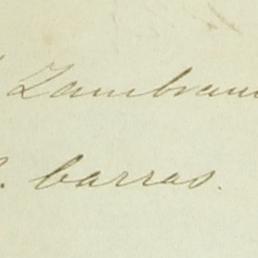 Zambran
Carras.